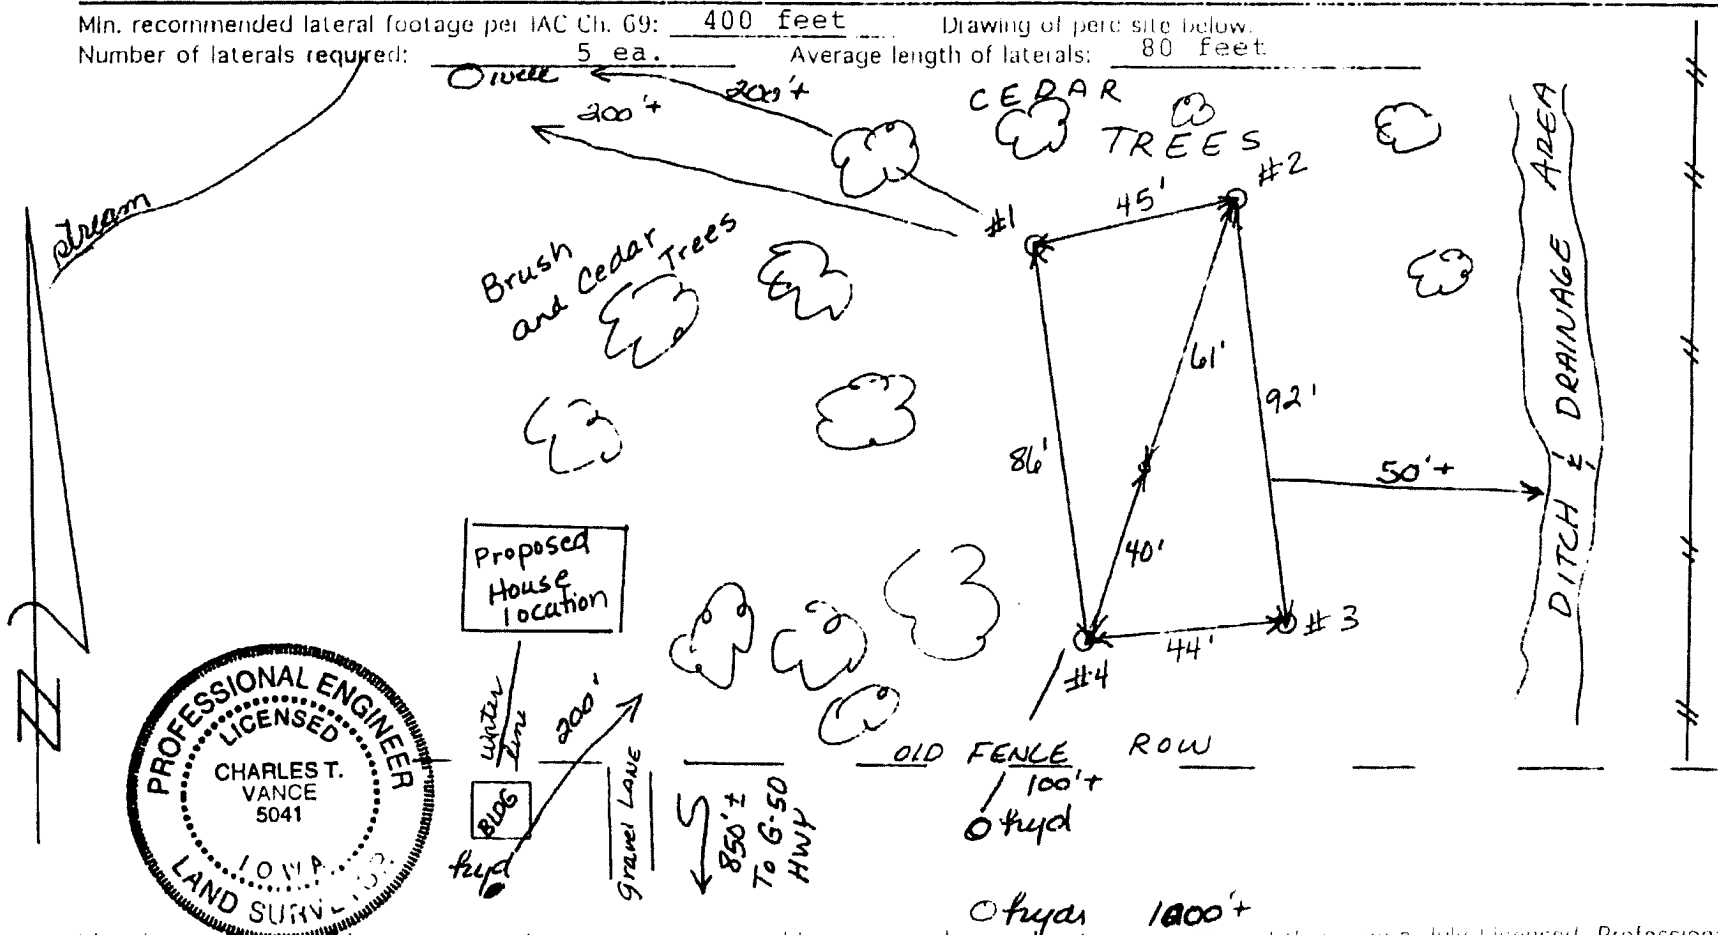 Min. recommended lateral footage per IAC Ch. 69: 400 feet Drawing of perc site below.
Number of laterals required: 5 ea. Average length of laterals: 80 feet
well
200'+
200'+
CEDAR
TREES
stream
Brush
and Cedar
Trees
#1
45'
#2
61'
92'
86'
40'
50'+
DITCH & DRAINAGE AREA
Proposed
House
location
#4
44'
#3
N
water
line
200'
OLD FENCE ROW
100'+
hyd
BLDG
hyd
Gravel LANE
850'±
To G-50
HWY
PROFESSIONAL ENGINEER
LICENSED
CHARLES T.
VANCE
5041
IOWA
LAND SURVEYOR